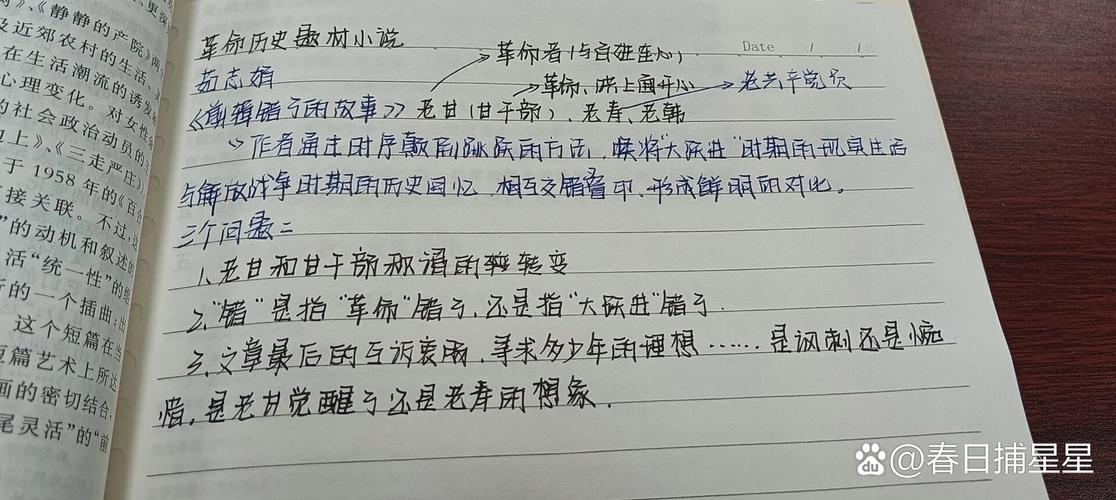 更深
》、《静静的产院》两
及近郊农村的生活。
在生活潮流的诱发
心理变化。对女性
的社会政治动员的
上》、《三走严庄》
于 1958 年的《百合
接关联。不过,这
”的动机和叙述的
活“统一性”的
行的一个插曲;出
这个短篇在当
短篇艺术上所达
画的密切结合,
尾灵活”的“前
Date / /
革命历史题材小说
革命者(与百姓连心)
茹志娟
革命、路上闹开心
老共产党员
《剪辑错了的故事》老甘(甘干部)、老寿、老韩
作者通过时序颠倒跳跃的方法,将“大跃进”时期的现实生活
与解放战争时期的历史回忆 相互交错叠印、形成鲜明的对比。
三个问题:
1、老甘和甘干部称谓的转变
2、“错”是指“革命”错了、还是指“大跃进”错了.
3、文章最后的互诉衷肠,寻求多少年的理想……是讽刺还是惋
惜,是老甘觉醒了还是老寿的想象.
Baidu @春日捕星星